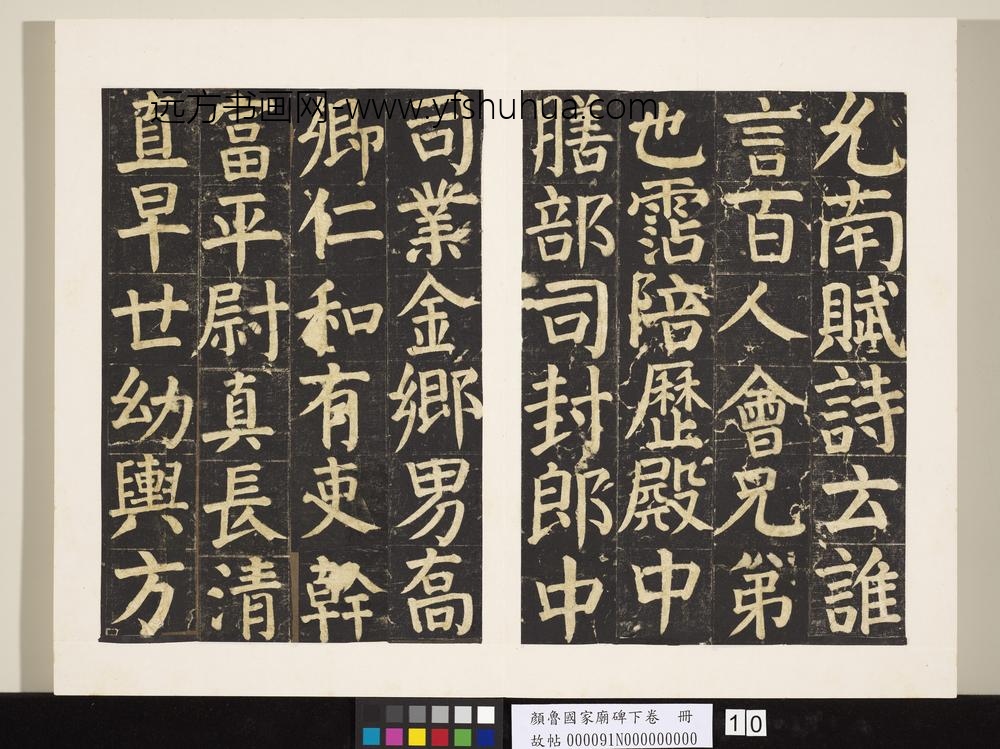 允南賦詩云誰
言百人會兄弟
也霑陪歷殿中
膳部司封郎中
司業金鄉男喬
卿仁和有吏幹
富平尉真長清
直早世幼輿方
远方书画网-www.yfshuhua.com
顏魯國家廟碑下卷 冊
故帖 000091N000000000
10